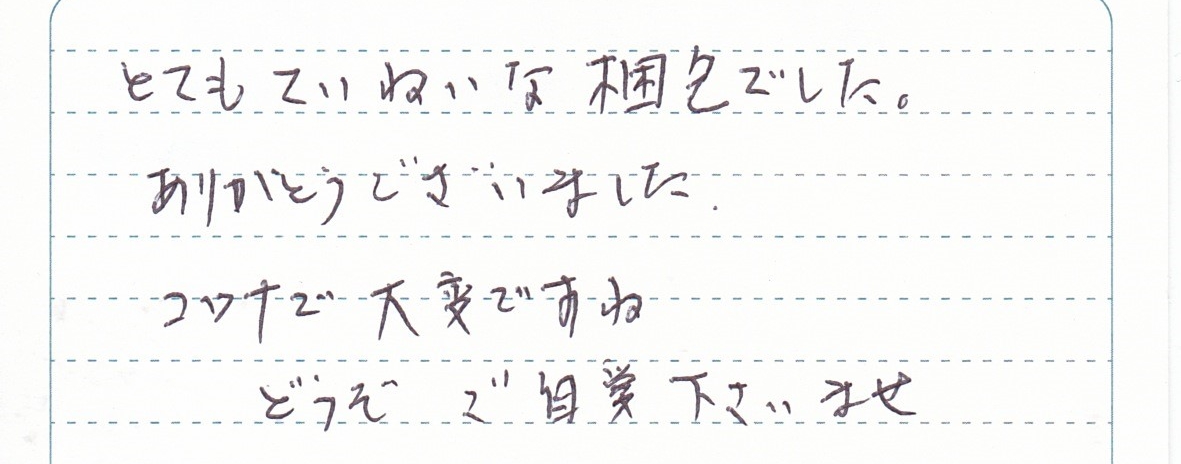 とてもていねいな梱包でした。
ありがとうございました.
コロナで大変ですね
どうぞ ご自愛下さいませ